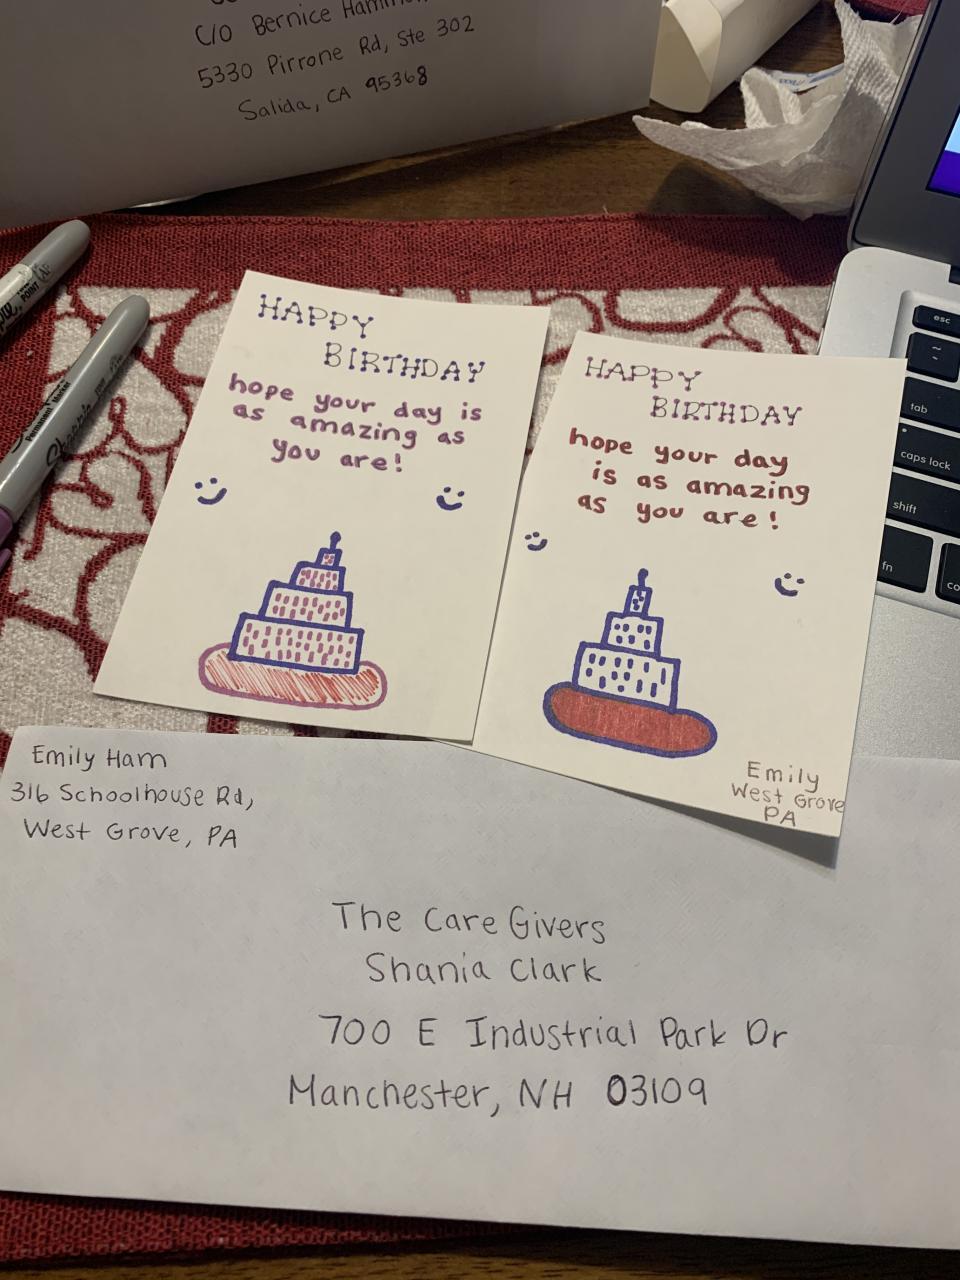 C/O Bernice
5330 Pirrone Rd, Ste 302
Salida, CA 95368
HAPPY
BIRTHDAY
hope your day is
as amazing as
you are!
HAPPY
BIRTHDAY
hope your day
is as amazing
as you are!
Emily
West Grove
PA
POINT
Permanent Marker
Sharpie
esc
~
tab
caps lock
shift
fn
Emily Ham
316 Schoolhouse Rd,
West Grove, PA
The Care Givers
Shania Clark
700 E Industrial Park Dr
Manchester, NH 03109